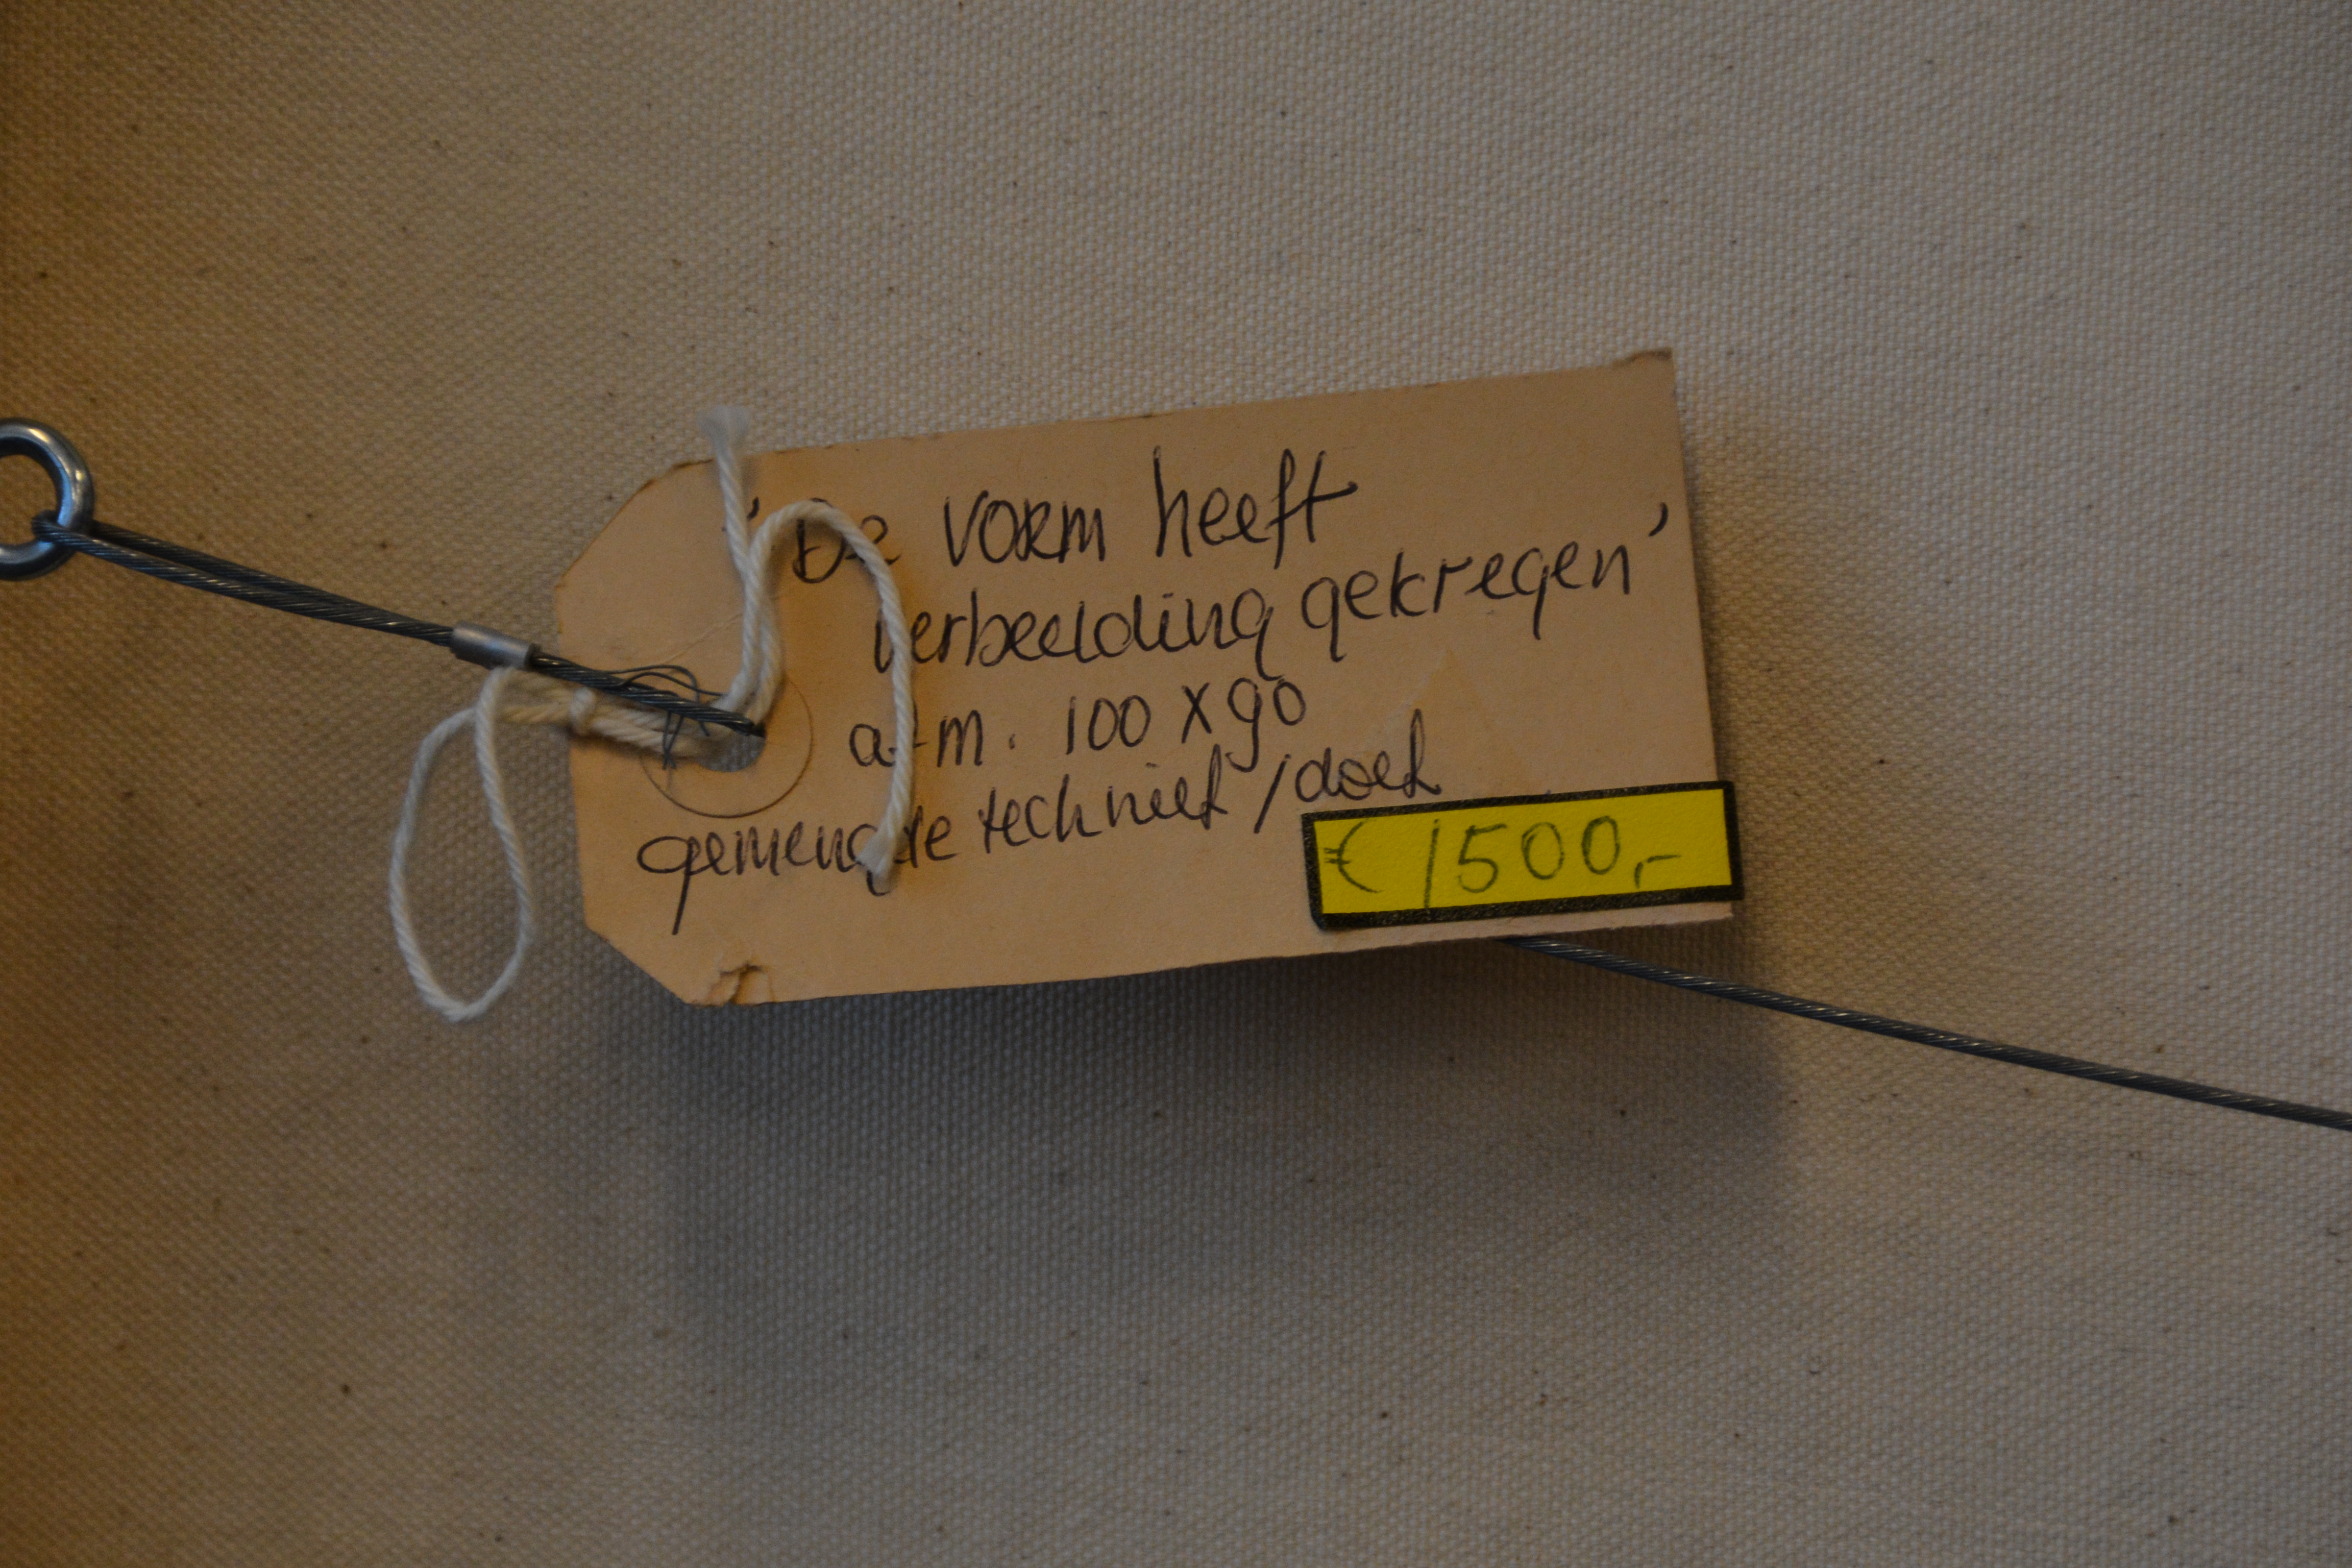 'De vorm heeft
verbeelding gekregen'
afm. 100 x 90
gemengde techniek / doek
€ 1500,-